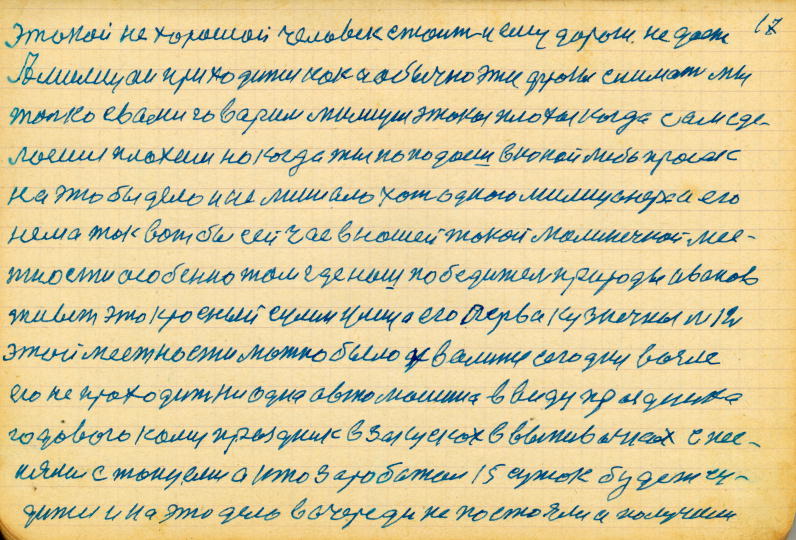 17
этокой не хорошой человек стоит и ему дороги не дает
В милицию приходити как а обычно эти друки снимат мы
толко свами говарим милици этокы плохы когда сами сде-
лоеш плохеи но когда ты поподоеш в кокой либь просак
на это бы дело и не мишало хот одного милицонера а его
нема ток вот бы сей час в нашей токой малинечкой мес-
тности особенно там где наш победител природы иванов
живет это кросный сулин улица его Перва кузнечны №12
этой местности можно было девалити сегодня возле
его не проходит ни одна автомашина ввиду праздника
годового кому праздник в закусках в выпивонках с пес-
нями с танцами а кто заработал 15 суток будет си-
дити и на это дело в очереди не постояли а получили